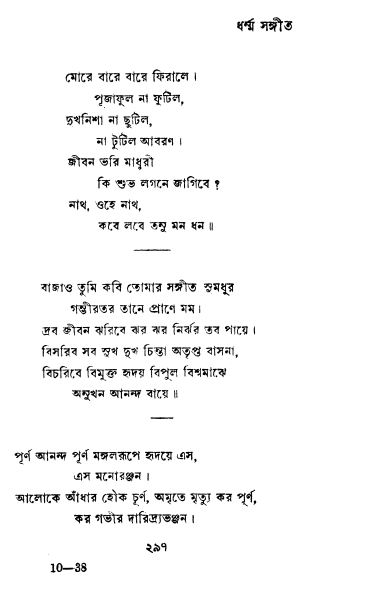 ধর্ম্ম সঙ্গীত
মোরে বারে বারে ফিরালে।
পূজাফুল না ফুটিল,
দুখনিশা না ছুটিল,
না টুটিল আবরণ।
জীবন ভরি মাধুরী
কি শুভ লগনে জাগিবে ?
নাথ, ওহে নাথ,
কবে লবে তনু মন ধন॥
বাজাও তুমি কবি তোমার সঙ্গীত সুমধুর
গম্ভীরতর তানে প্রাণে মম।
দ্রব জীবন ঝরিবে ঝর ঝর নির্ঝর তব পায়ে।
বিসরিব সব সুখ দুখ চিন্তা অতৃপ্ত বাসনা,
বিচরিবে বিমুক্ত হৃদয় বিপুল বিশ্বমাঝে
অনুখন আনন্দ বায়ে॥
পূর্ণ আনন্দ পূর্ণ মঙ্গলরূপে হৃদয়ে এস,
এস মনোরঞ্জন।
আলোকে আঁধার হৌক চূর্ণ, অমৃতে মৃত্যু কর পূর্ণ,
কর গভীর দারিদ্র্যভঞ্জন।
২৯৭
10—38